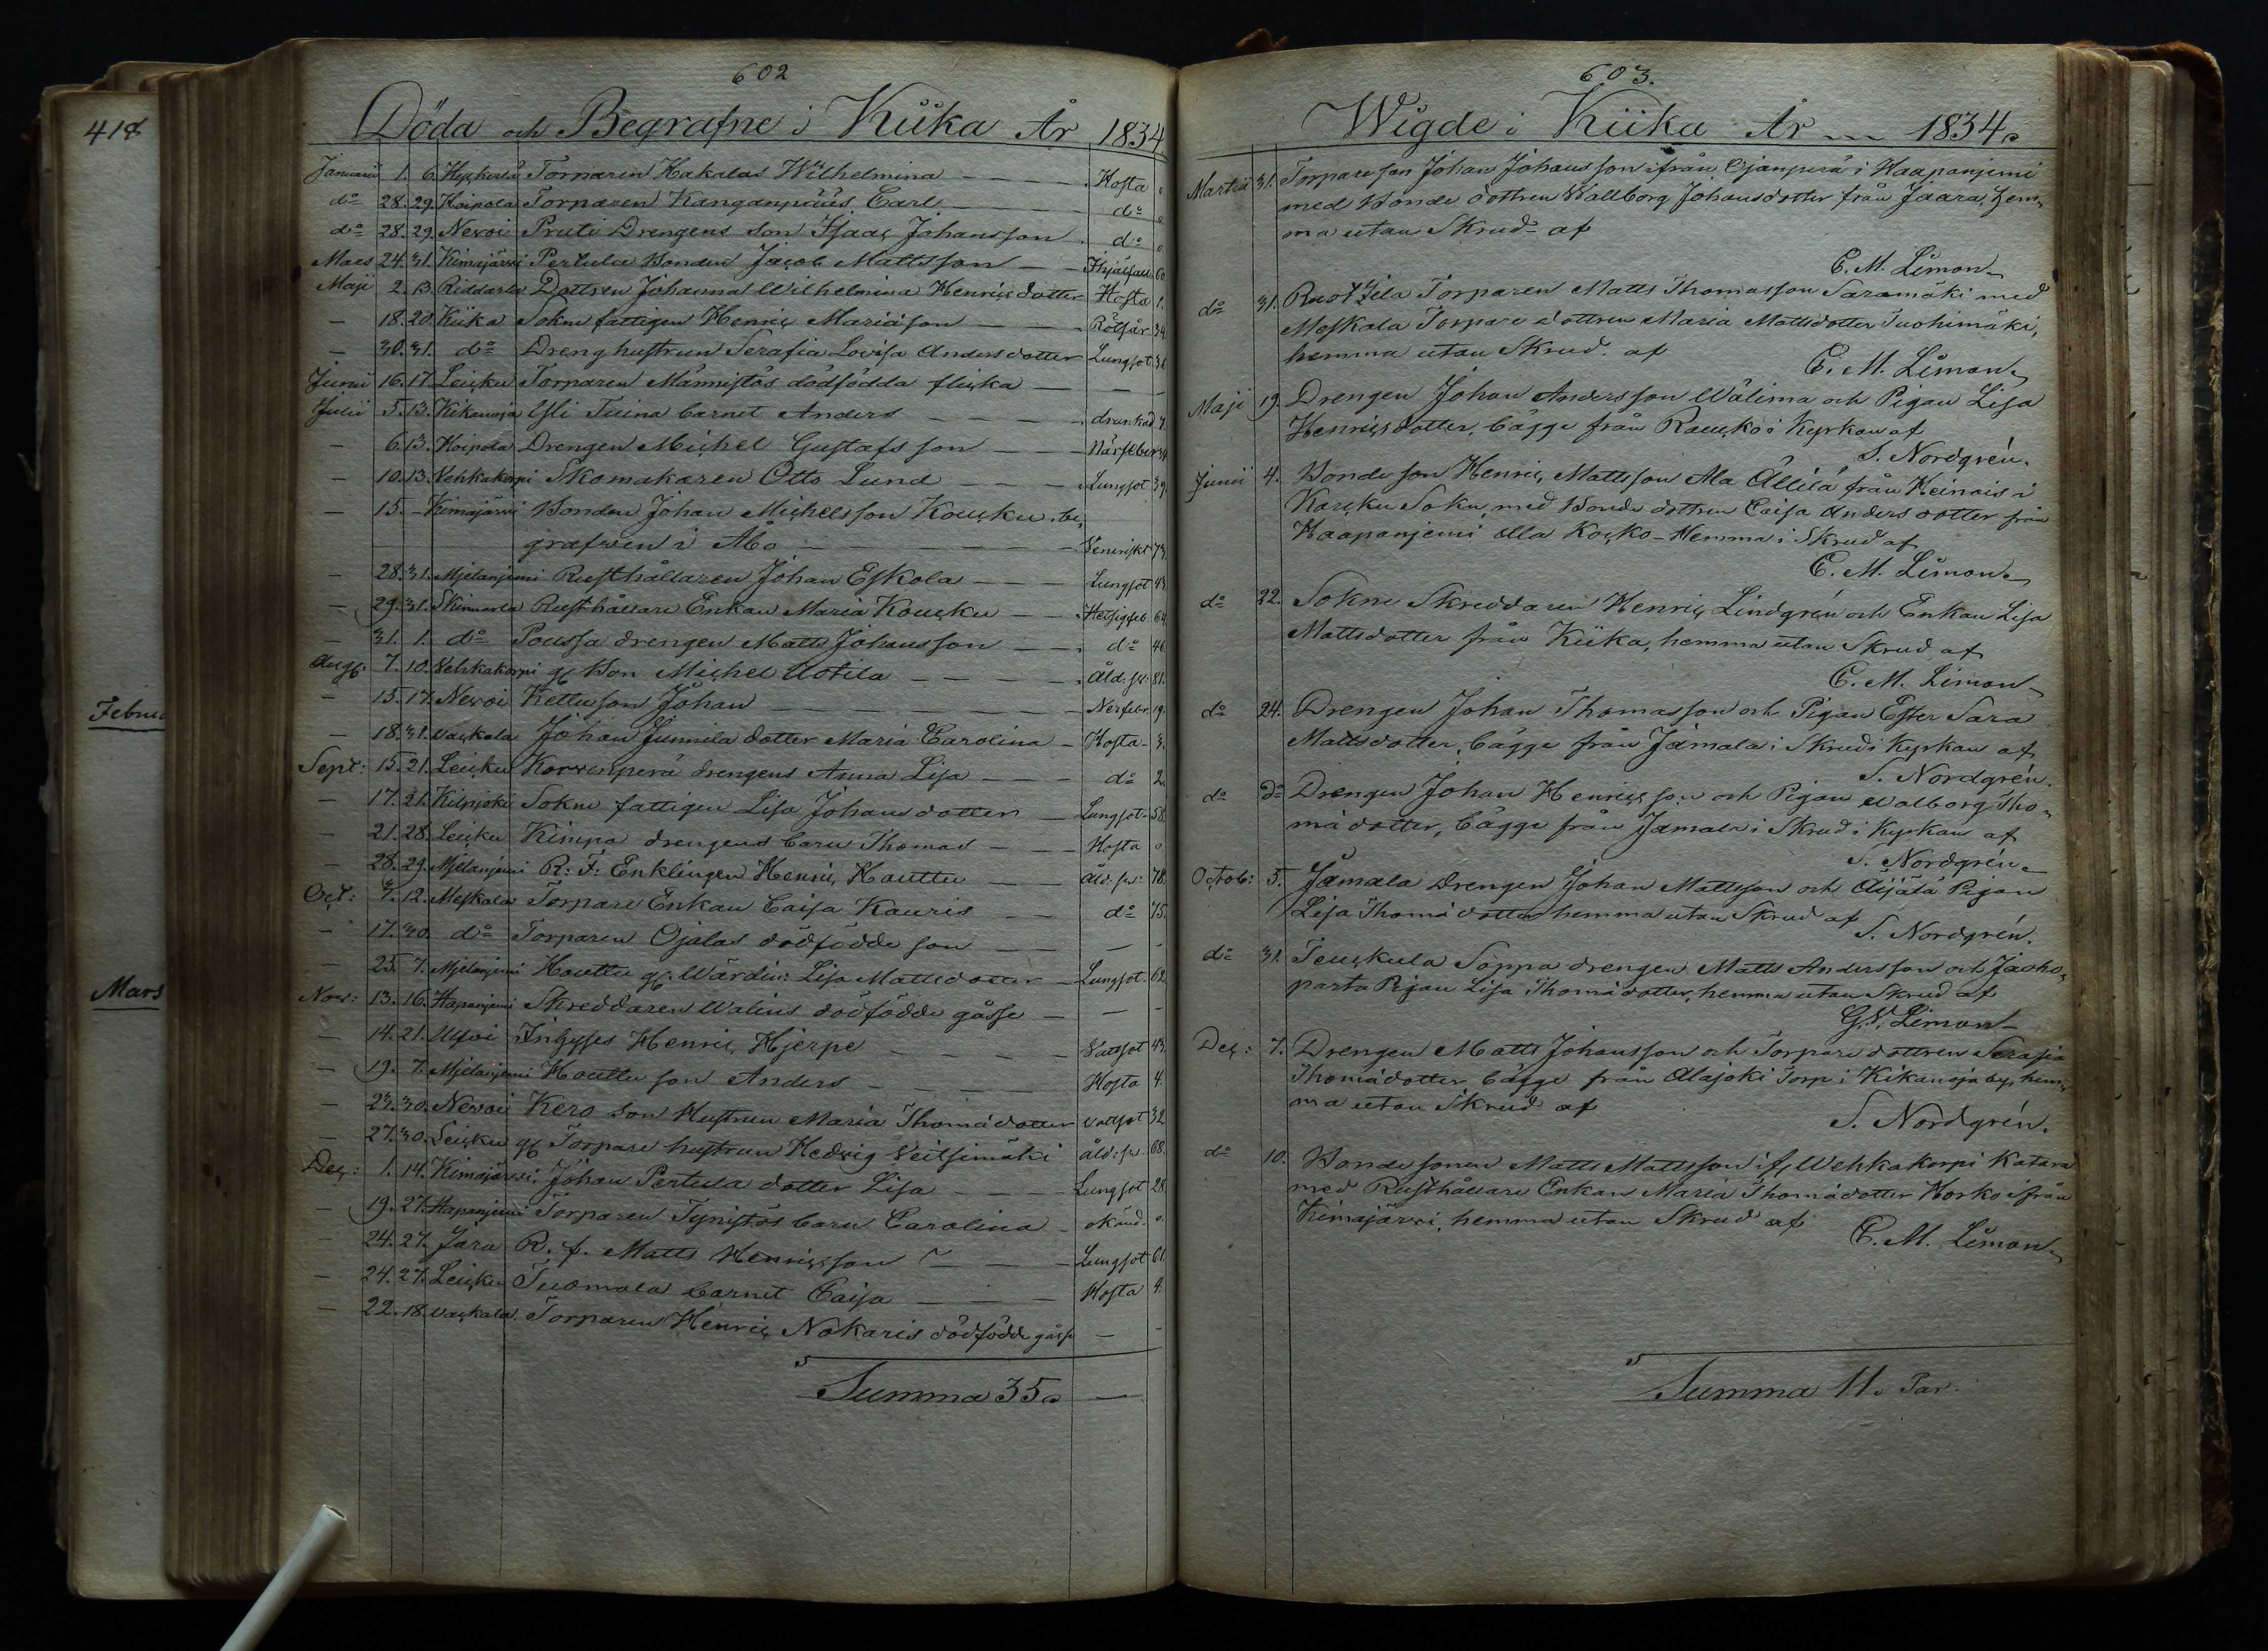 418
Februa
Mars
602
Döda och Begrafne i Kiika År 1834.
Januarii 1. 6. Torparen Kakalas Wilhelmina Hosta 0
do 28. 29. Koipola Torparen Kanganpääs Carl do 0
do 28. 29. Nevoi Pruti Drengens son Isaac Johansson do 0
Mars 24. 31. Kimajärvi Pertula Bonden Jacob Mattsson 60
Maji 2. 13. Riddarla Dottren Johanna Wilhelmina Henricsdotter Hosta 1.
— 18. 20. Kiika Sokne fattigen Henric Mariäson Rötsår 34
— 30. 31. do Dreng hustrun Serafia Lovisa Andersdotter Lungsot 36
Junii 16. 17. Leucku Torparen Männistös dödfödda flicka — —
Julii 5. 13. Kikanoja Yli Tuina barnet Anders drunknad 7.
— 6. 13. Koipola Drengen Michel Gustafsson Närfeber
— 10. 13. Vehkakorpi Skomakaren Otto Lund Lungsot 39.
— 15. — Kimajärvi Bonden Johan Michelsson Koucku, be,
grafven i Åbo Venerisk 73.
— 28. 31. Mjelanjemi Rusthållaren Johan Eskola Lungsot 43.
— 29. 31. Skinnarla Rusthållare Enkan Maria Koucku Hetsigfeb. 64
— 31. 1. do Poussa drengen Matts Johansson do 46
Aug: 7. 10. Vehkakorpi gl Bon Michel Uotila Åld: sv: 81.
— 15. 17. Nevoi Kettu son Johan Nerfebr. 19.
— 18. 31. Vackala Johan Junnila dotter Maria Carolina Hosta 3.
Sept: 15. 21. Leucku Korvenperä drengens Anna Lisa do 2.
— 17. 21. Kilpijoki Sokne fattigen Lisa Johansdotter Lungsot 58.
— 21. 28. Leucku Kimpa drengens barn Thomas Hosta 0
— 28. 29. Mjelanjemi R: F: Enklingen Henric Hauttu åld. sv: 78.
Oct: 4. 12. Meskala Torpare Enkan Caisa Kauris do 75.
— 17. 30. do Torparen Ojalas dödfödde son — —
— 25. 7. Mjelanjemi Houttu gl. Wärdin: Lisa Mattsdotter Lungsot. 62.
Nov: 13. 16. Hapanjemi Skreddaren Walins dödfödde gåsse — —
— 14. 21. Inhyses Henric Hjerpe Vattsot 43.
— 19. 7. Mjelanjemi Houttu son Anders Hosta 4.
— 23. 30. Nevoi Kero Son Hustrun Maria Thomädotter vattsot 32
— 27. 30. Leucku gl Torpare hustrun Hedvig Veitsimäki åld: sv. 68.
Dec: 1. 14. Kimajärvi: Johan Pertula dotter Lisa Lungsot 28.
— 19. 27. Hapanjemi Torparen Tynistös barn Carolina okänd. 0.
— 24. 27. Jära R. f. Matts Henricsson Lungsot 61.
— 24. 27. Leucku Tuomola barnet Caisa Hosta 4.
— 22. 18. Vackala. Torparen Henric Nokaris dödfödde gåsse — —
Summa 35. —
603.
Wigde i Kiika År 1834.
Martii 31. Torpare son Johan Johansson ifrån Ojanperä i Haapanjemi
med Bonde dottren Wallborg Johansdotter från Jaara, hem,
ma utan Skrud af
C. M. Limon
do 31. Ruotzila Torparen Matts Thomasson Saramäki med
Meskala Torpare dottren Maria Mattsdotter Tuohimäki,
hemma utan Skrud. af
C. M. Limon
Maji 19. Drengen Johan Andersson Wälima och Pigan Lisa
Henricsdotter, bägge från Raucko i Kyrkan af
S. Nordgrén.
Junii 4. Bonde son Henric Mattsson Ala Ällilä från Heinois i
Karcku Sokn, med Bonde dottren Caisa Andersdotter från
Haapanjemi Kocko - Hemma i Skrud af
C. M. Limon
do 22. Sokne Skreddaren Henric Lindgrén och Enkan Lisa
Mattsdotter från Kiika, hemma utan Skrud af
C. M. Limon
do 24. Drengen Johan Thomasson och Pigan Ester Sara
Mattsdotter, bägge från Jämala i Skrud i Kyrkan af
S. Nordgrén.
do do Drengen Johan Henricsson och Pigan Walborg Tho,
mä dotter, bägge från Jämala i Skrud i Kyrkan af
S. Nordgrén.
Octob: 5. Jämala Drengen Johan Mattsson och Äijälä Pigan
Lisa Thomädotter hemma utan Skrud af
S. Nordgrén.
do 31. Teuckula Soppa drengen Matts Andersson och Jaaho,
parta Pigan Lisa Thomädotter, hemma utan Skrud af
G. N. Limon
Dec: 7. Drengen Matts Johansson och Torpare dottren Serafia
Thomädotter bägge från Alajoki Torp i Kikanoja by, hem,
ma utan Skrud af
S. Nordgrén.
do 10. Bonde sonen Matts Mattsson if, Wehkakorpi Katara
med Rusthållare Enkan Maria Thomädotter Horko ifrån
Kimajärvi, hemma utan Skrud af
C. M. Limon
Summa 11. Par.